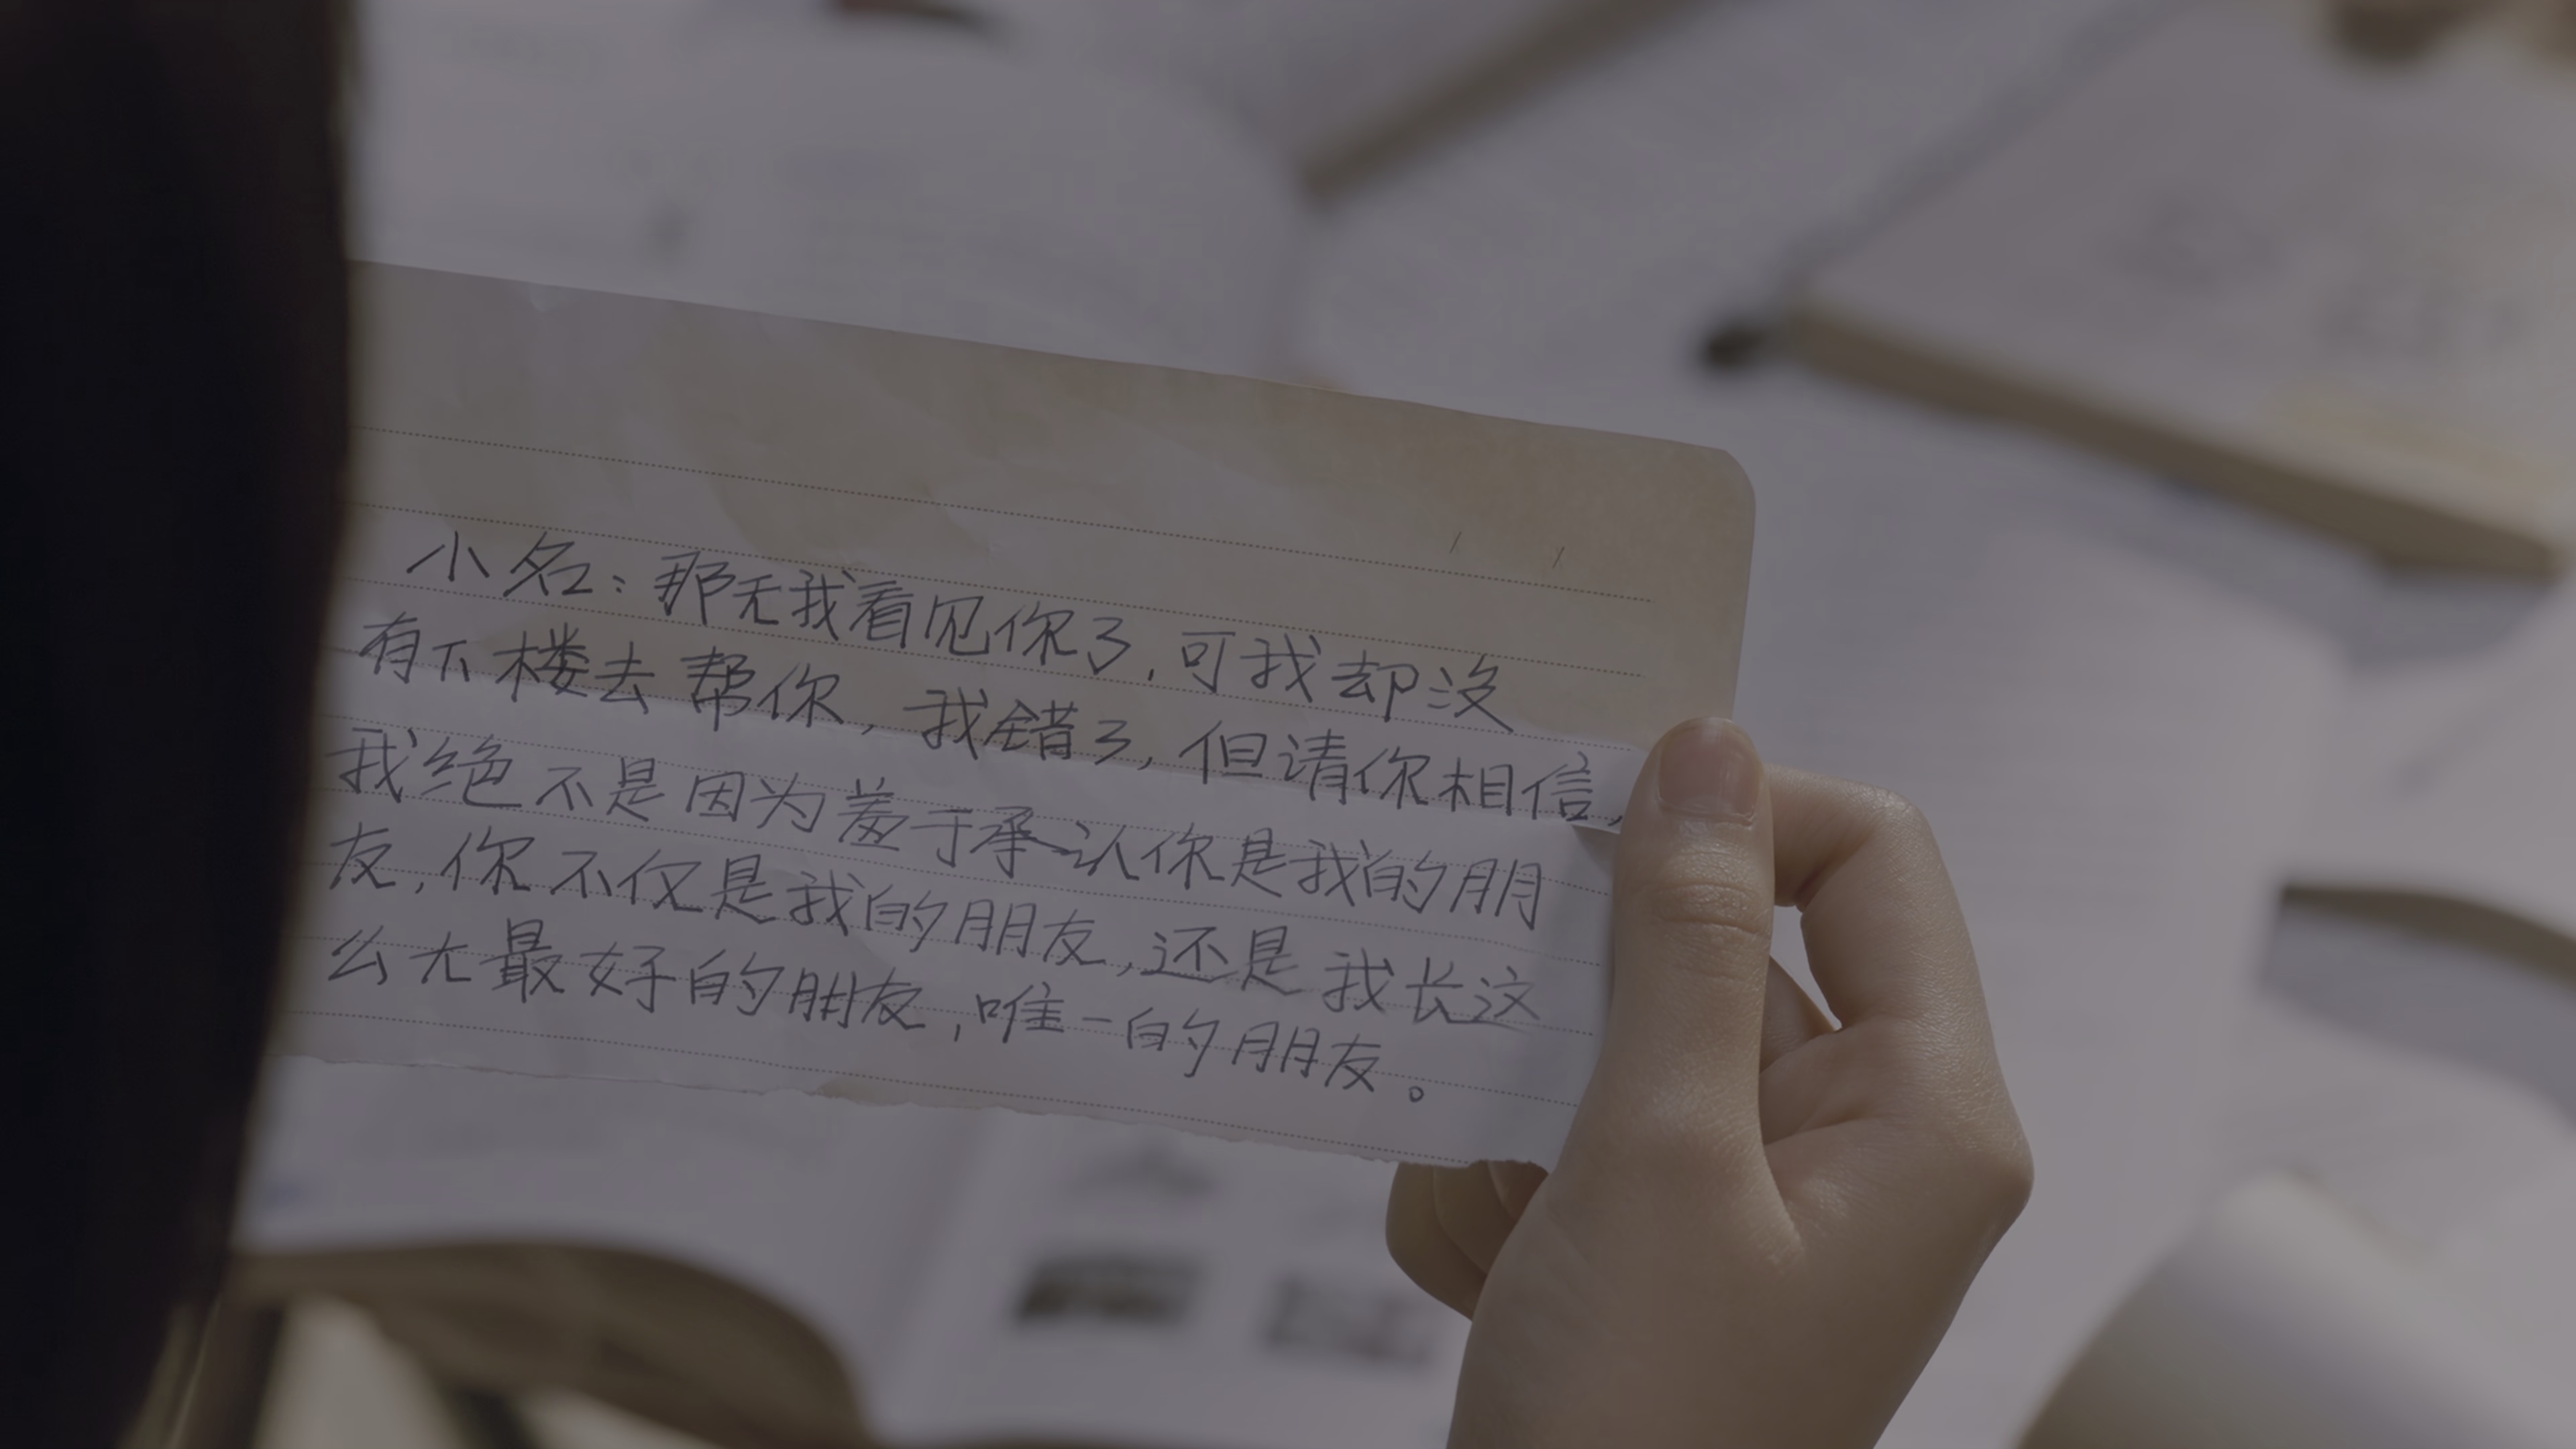 小名：那天我看见你了，可我却没
有下楼去帮你，我错了，但请你相信，
我绝不是因为羞于承认你是我的朋
友，你不仅是我的朋友，还是我长这
么大最好的朋友，唯一的朋友。